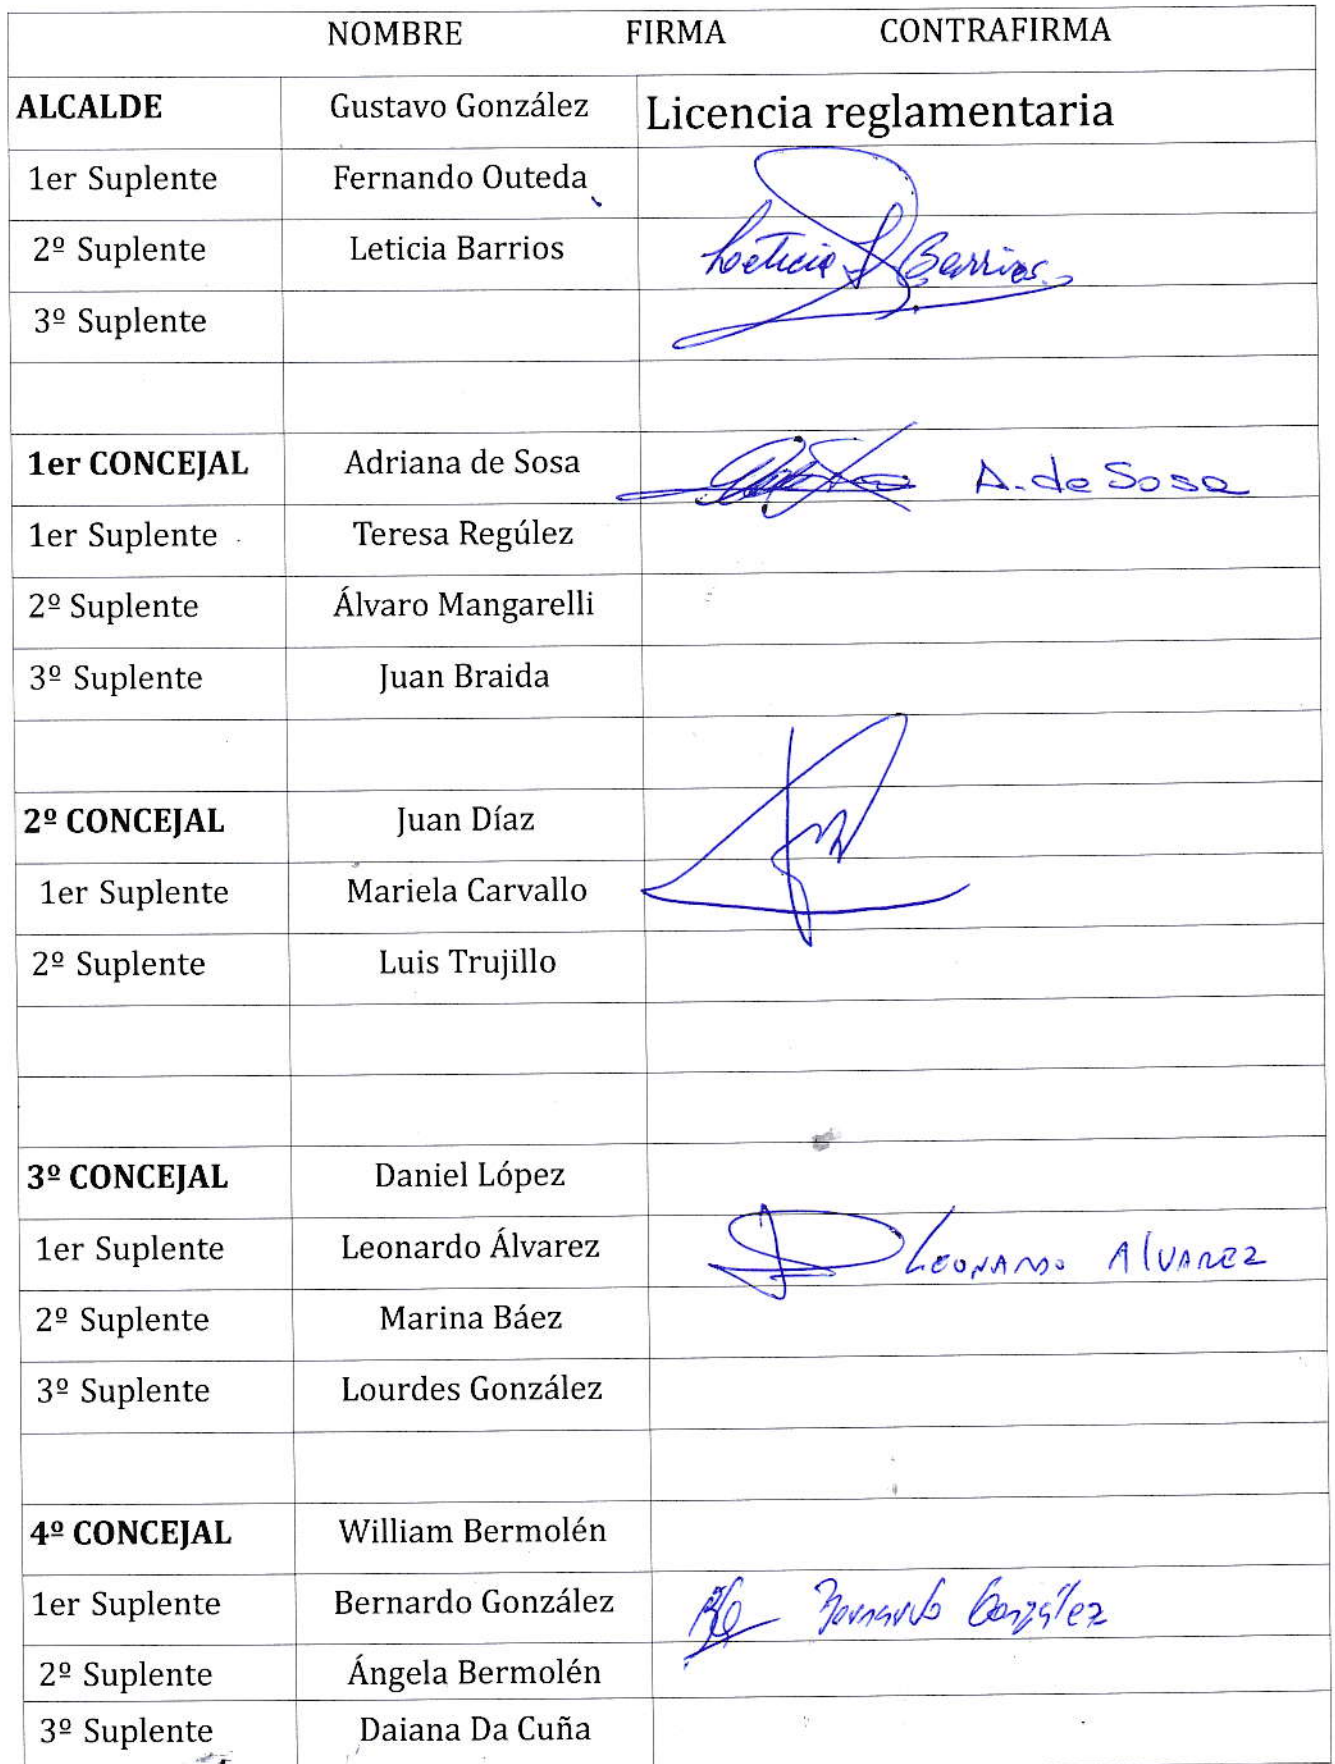 NOMBRE FIRMA CONTRAFIRMA
ALCALDE Gustavo González Licencia reglamentaria
1er Suplente Fernando Outeda
2º Suplente Leticia Barrios Leticia Barrios
3º Suplente
1er CONCEJAL Adriana de Sosa A. de Sosa
1er Suplente Teresa Regúlez
2º Suplente Álvaro Mangarelli
3º Suplente Juan Braida
2º CONCEJAL Juan Díaz
1er Suplente Mariela Carvallo
2º Suplente Luis Trujillo
3º CONCEJAL Daniel López
1er Suplente Leonardo Álvarez LEONARDO ALVAREZ
2º Suplente Marina Báez
3º Suplente Lourdes González
4º CONCEJAL William Bermolén
1er Suplente Bernardo González Bernardo González
2º Suplente Ángela Bermolén
3º Suplente Daiana Da Cuña